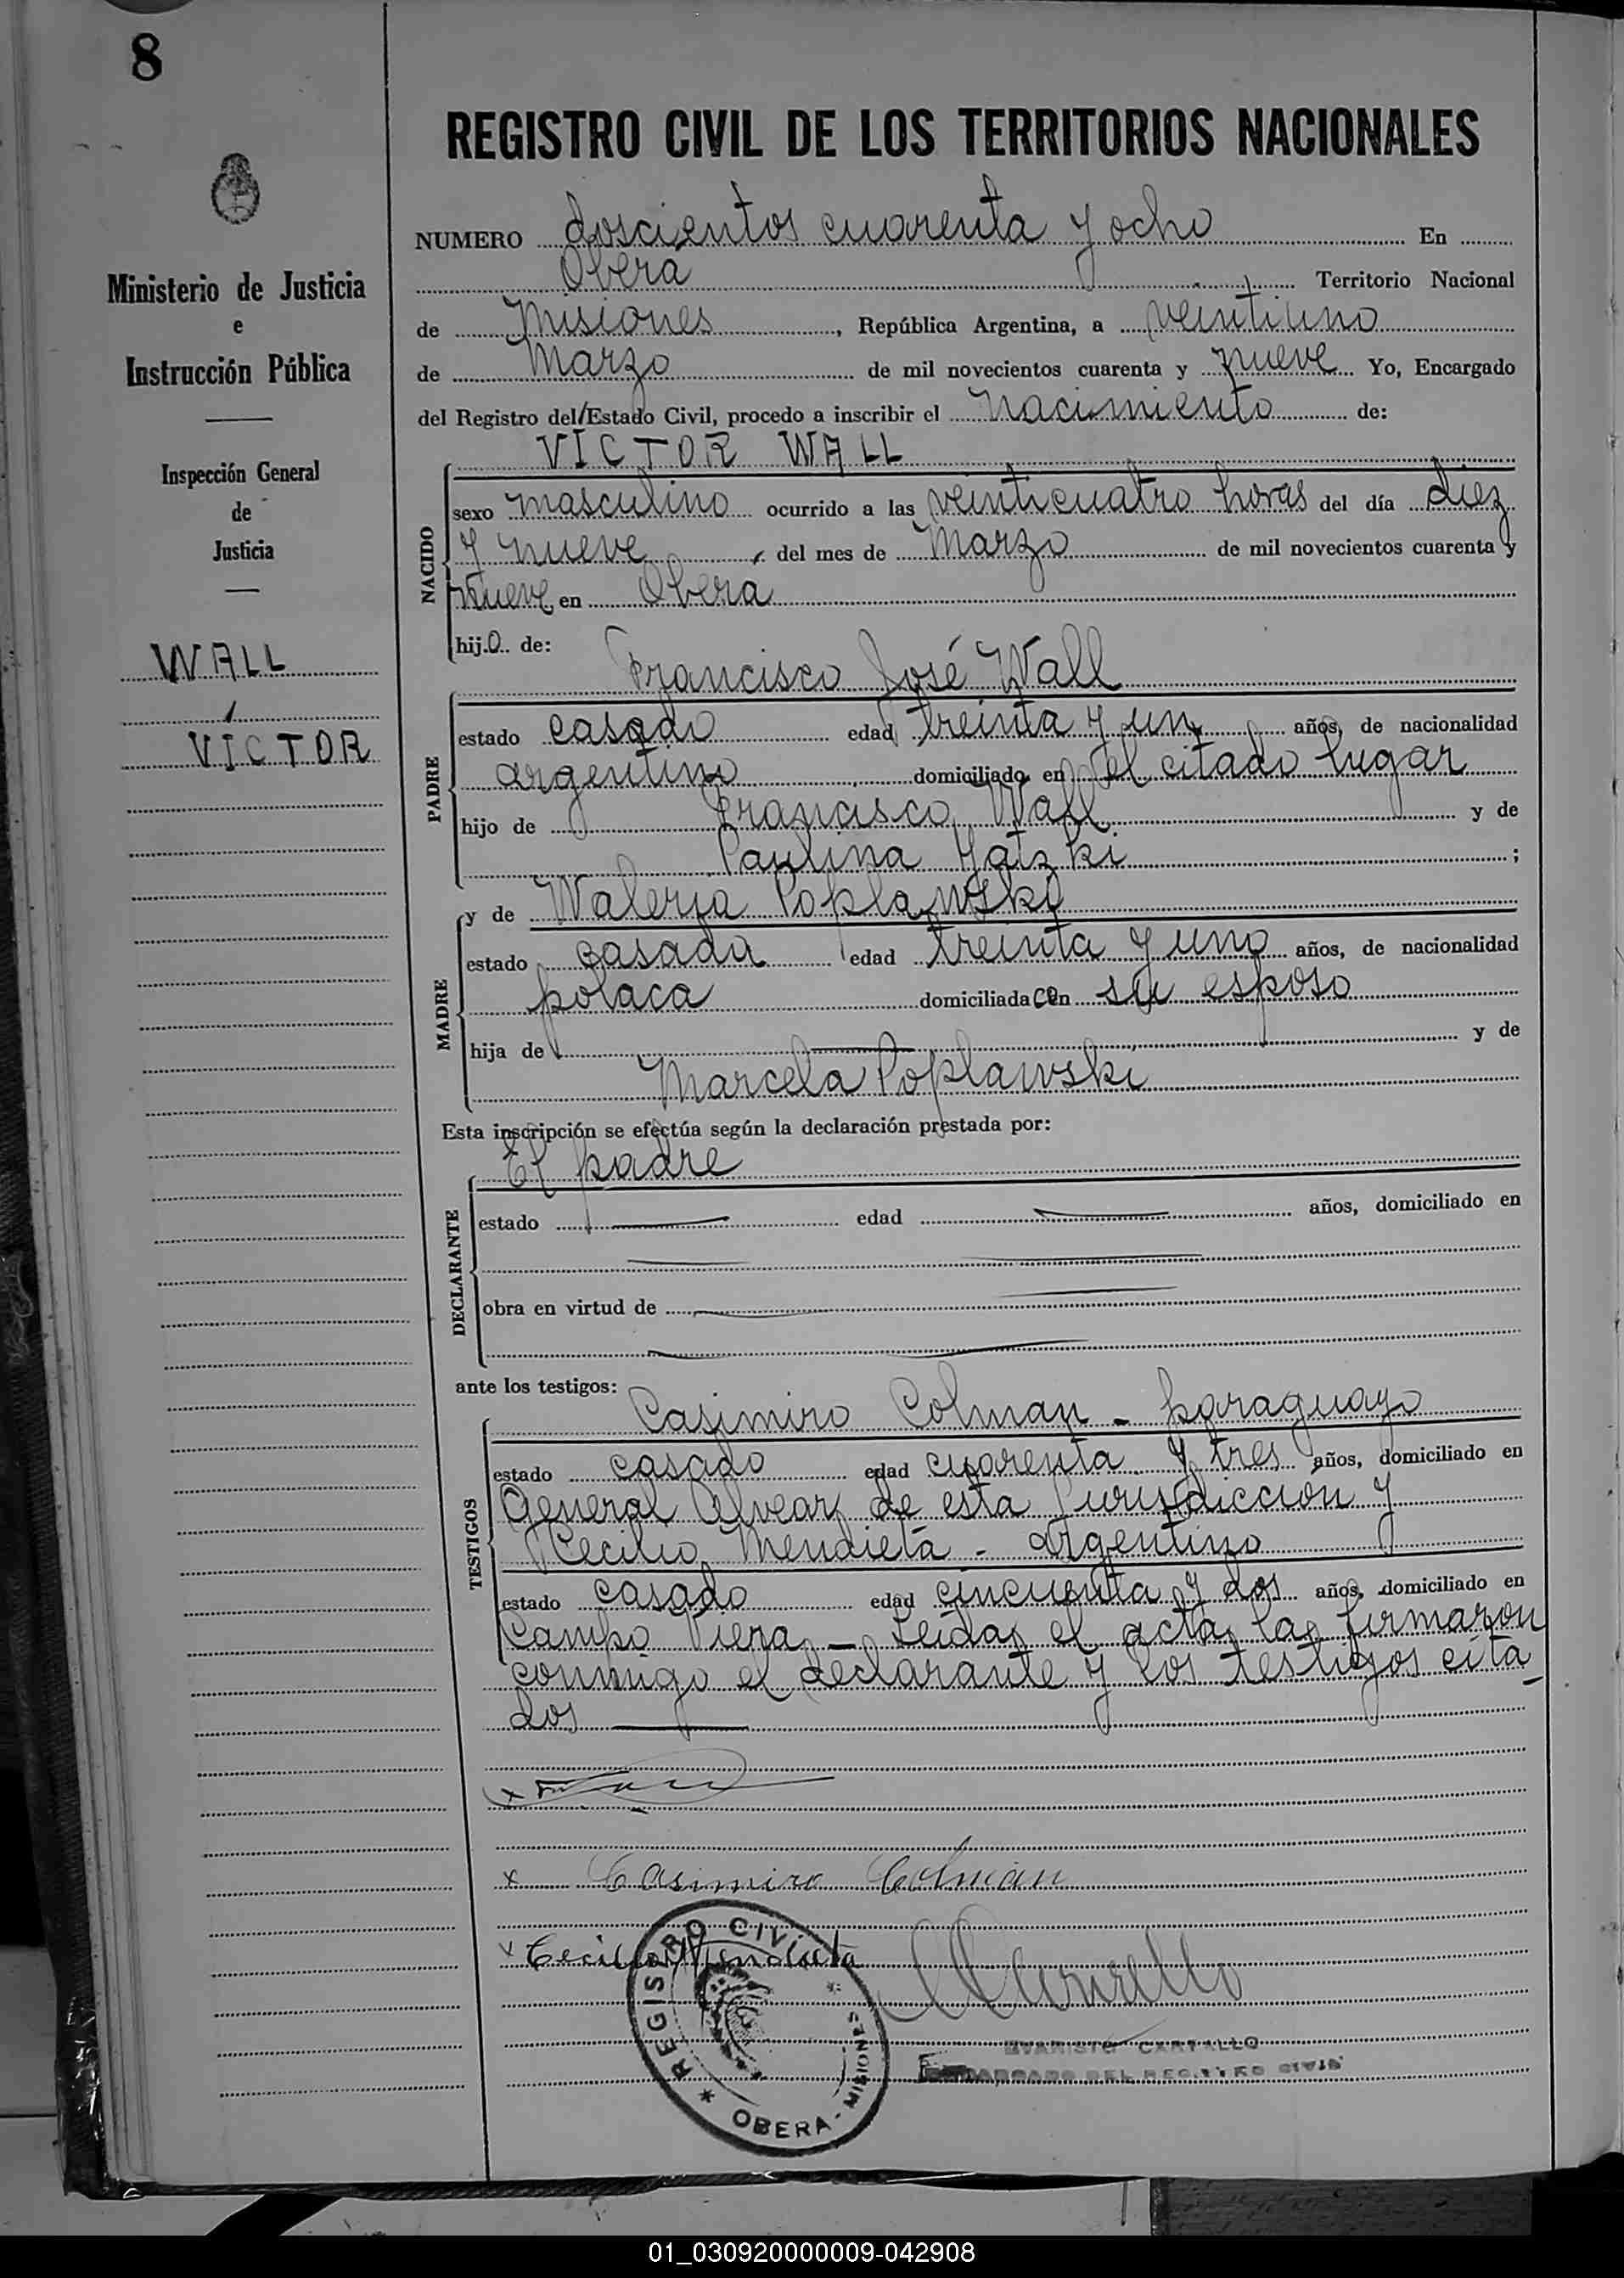 8
REGISTRO CIVIL DE LOS TERRITORIOS NACIONALES
Ministerio de Justicia
e
Instrucción Pública
Inspección General
de
Justicia
WALL
VÍCTOR
NUMERO doscientos cuarenta y ocho En
Oberá Territorio Nacional
de Misiones, República Argentina, a veintiuno
de Marzo de mil novecientos cuarenta y nueve Yo, Encargado
del Registro del Estado Civil, procedo a inscribir el nacimiento de:
VICTOR WALL
NACIDO
sexo masculino ocurrido a las veinticuatro horas del día diez
y nueve, del mes de Marzo de mil novecientos cuarenta y
nueve en Oberá
hijo de: Francisco José Wall
PADRE
estado casado edad treinta y un años, de nacionalidad
argentino domiciliado en el citado lugar
hijo de Francisco Wall y de
Paulina Yatzki ;
y de Walerja Poplawski
MADRE
estado casada edad treinta y uno años, de nacionalidad
polaca domiciliada con su esposo
hija de y de
Marcela Poplawski
Esta inscripción se efectúa según la declaración prestada por:
El padre
DECLARANTE
estado edad años, domiciliado en
obra en virtud de
ante los testigos: Casimiro Colman - paraguayo
TESTIGOS
estado casado edad cuarenta y tres años, domiciliado en
General Alvear de esta Jurisdicción y
Cecilio Mendieta - argentino
estado casado edad cincuenta y dos años, domiciliado en
Campo Viera - Leida el acta la firmaron
conmigo el declarante y los testigos cita
dos
x
x Casimiro Colmán
x Cecilio Mendieta
REGISTRO CIVIL
OBERA - MISIONES
EVARISTO CARVALLO
ENCARGADO DEL REGISTRO CIVIL
01_030920000009-042908